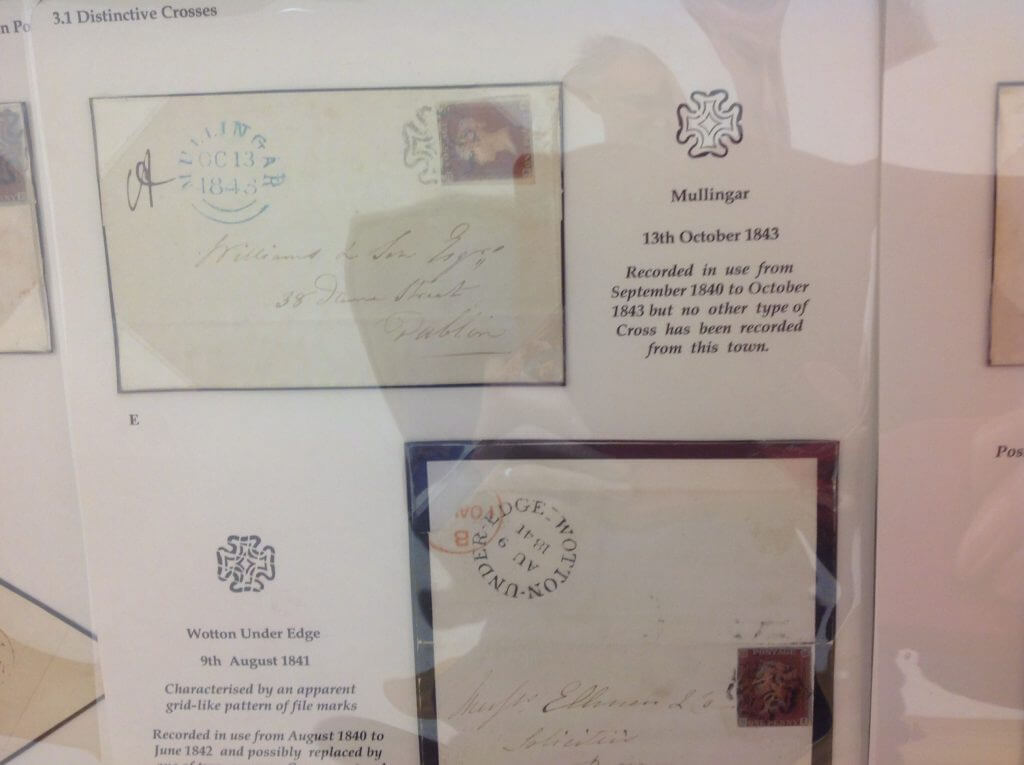 n Po
3.1 Distinctive Crosses
MULLINGAR
OC 13
1843
Williams & Son Esqrs
38 Dame Street
Dublin
Mullingar
13th October 1843
Recorded in use from
September 1840 to October
1843 but no other type of
Cross has been recorded
from this town.
E
WOTTON-UNDER-EDGE
AU 9
1841
8
POSTAGE
ONE PENNY
Messrs
Solicitors
Wotton Under Edge
9th August 1841
Characterised by an apparent
grid-like pattern of file marks
Recorded in use from August 1840 to
June 1842 and possibly replaced by
Pos